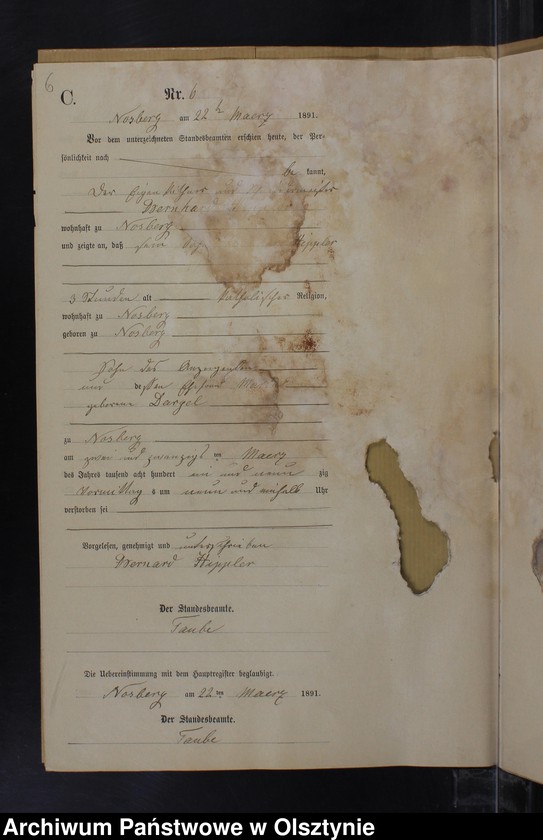 6
C.
Nr. 6
Nosberg am 22 ten Maerz 1891.
Vor dem unterzeichneten Standesbeamten erschien heute, der Per-
sönlichkeit nach
be kannt,
Der Eigenkäthner
Bernha
wohnhaft zu Nosberg
und zeigte an, daß sein Hippler
3 Stunden alt katholischer Religion,
wohnhaft zu Nosberg
geboren zu Nosberg
Sohn des Anzeigenden
und dessen Ehefrau
geborene Dargel
zu Nosberg
am zwei und zwanzigsten Maerz
des Jahres tausend acht hundert ein und neun zig
Vormittag s um neun und einhalb Uhr
verstorben sei
Vorgelesen, genehmigt und unterschrieben
Bernard Hippler
Der Standesbeamte.
Taube
Die Uebereinstimmung mit dem Hauptregister beglaubigt.
Nosberg am 22 ten Maerz 1891.
Der Standesbeamte.
Taube
Archiwum Państwowe w Olsztynie